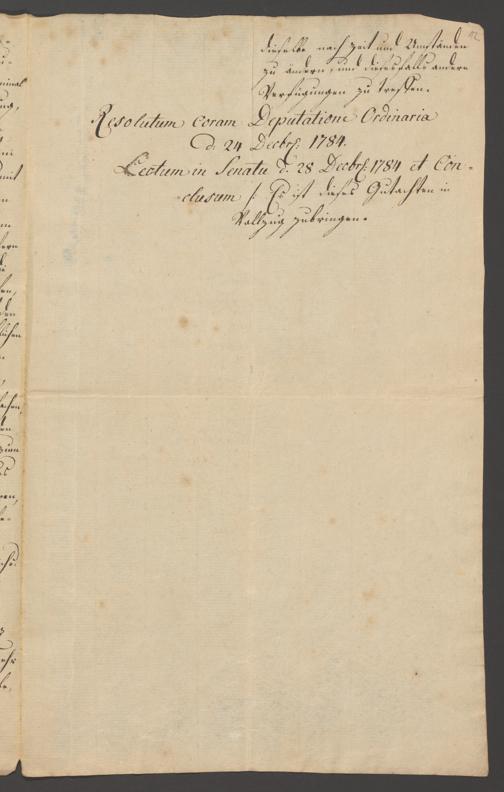 12
dieselbe nach Zeit und Umständen
zu ändern, und diesesfalls andere
Verfügungen zu treffen.
Resolutum coram Deputatione Ordinaria
d. 24 Decbrs. 1784.
Lectum in Senatu d. 28 Decbrs. 1784 et Con-
clusum /: Es ist dieses Gutachten in
Vollzug zubringen.